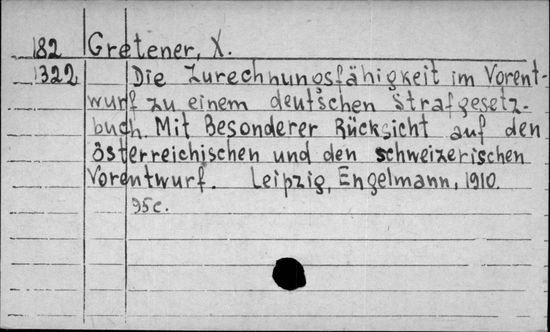 182 Gretener, X.
1322 Die Zurechnungsfähigkeit im Vorent-
wurf zu einem deutschen Strafgesetz-
buch. Mit Besonderer Rücksicht auf den
österreichischen und den schweizerischen
Vorentwurf. Leipzig, Engelmann, 1910.
95c.